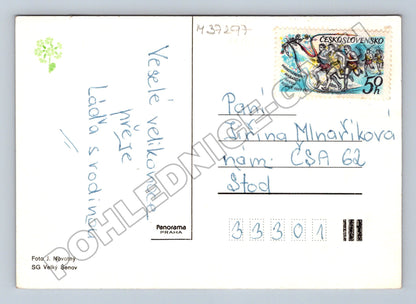 M37297
ČESKOSLOVENSKO
50 h
Veselé velikonoce
přeje
Láďa s rodinou
Paní
Jiřina Mlnaříková
nám. ČSA 62
Stod
33301
Panorama
PRAHA
Foto J. Novotný
SG Velký Šenov
POHLEDNICE-G